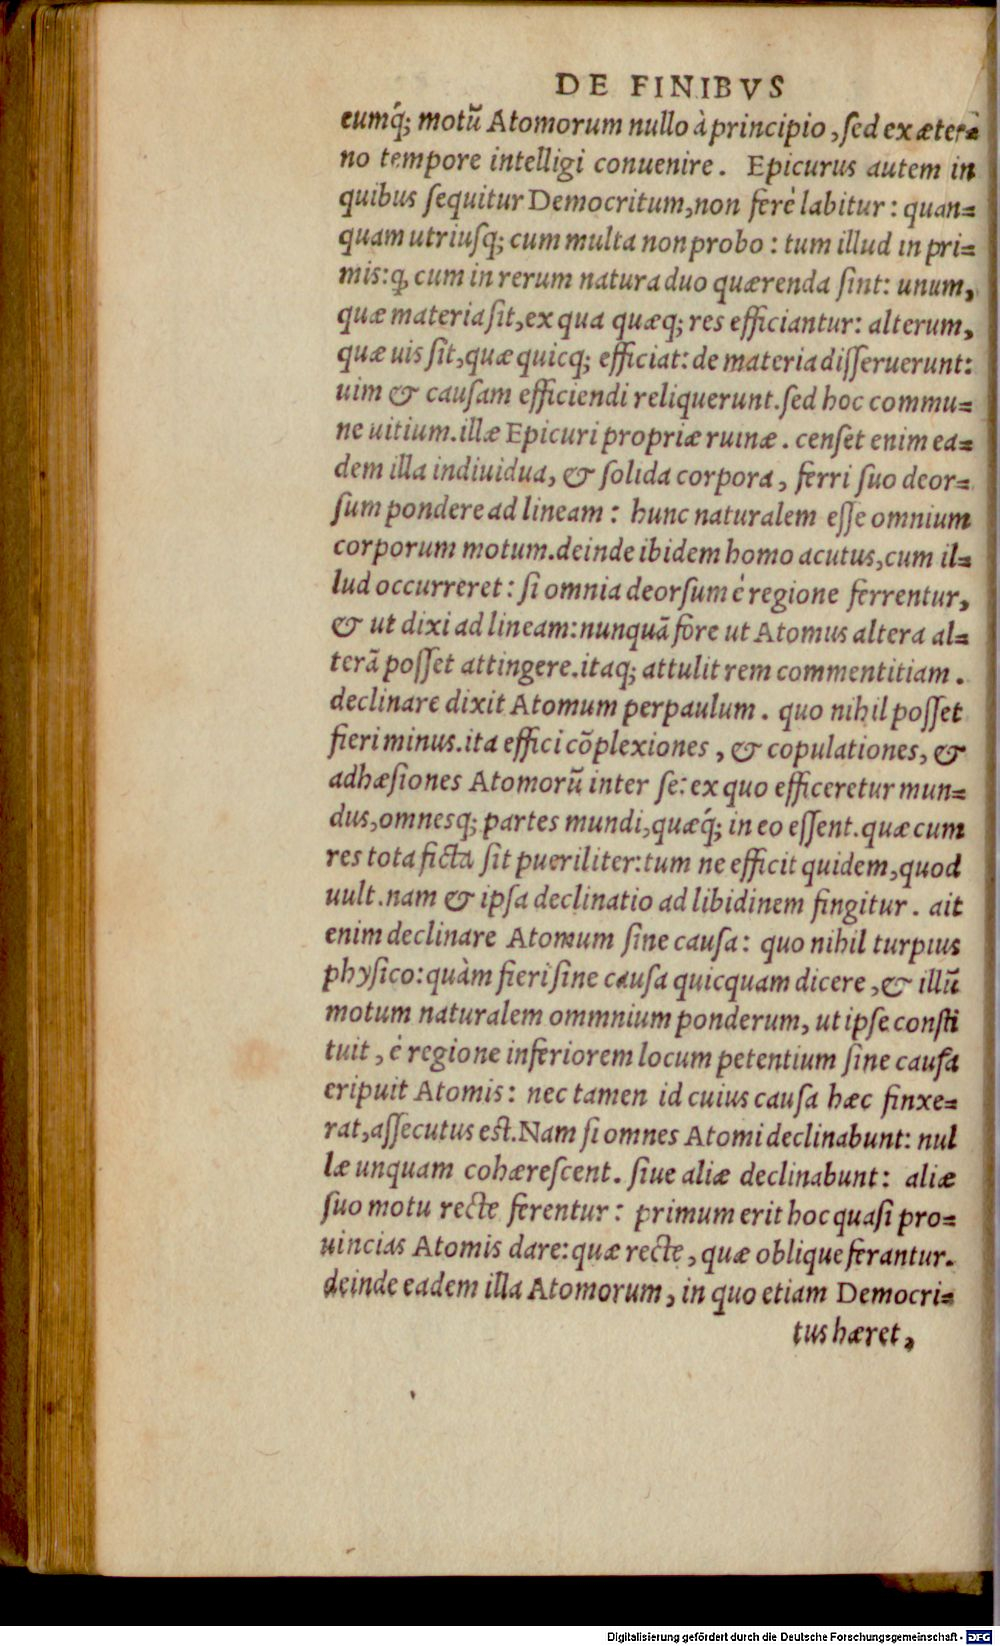 DE FINIBVS
eumq́; motũ Atomorum nullo à principio, ſed ex æter=
no tempore intelligi conuenire. Epicurus autem in
quibus ſequitur Democritum, non ferè labitur: quan=
quam utriuſq; cum multa non probo: tum illud in pri=
mis: ꝙ cum in rerum natura duo quærenda ſint: unum,
quæ materia ſit, ex qua quæq; res efficiantur: alterum,
quæ uis ſit, quæ quicq; efficiat: de materia diſſeruerunt:
uim & cauſam efficiendi reliquerunt. ſed hoc commu=
ne uitium. illæ Epicuri propriæ ruinæ. cenſet enim ea=
dem illa indiuidua, & ſolida corpora, ferri ſuo deor=
ſum pondere ad lineam: hunc naturalem eſſe omnium
corporum motum. deinde ibidem homo acutus, cum il=
lud occurreret: ſi omnia deorſum è regione ferrentur,
& ut dixi ad lineam: nunquã fore ut Atomus altera al=
terã poſſet attingere. itaq; attulit rem commentitiam.
declinare dixit Atomum perpaulum. quo nihil poſſet
fieri minus. ita effici cõplexiones, & copulationes, &
adhæſiones Atomorũ inter ſe: ex quo efficeretur mun=
dus, omnesq; partes mundi, quæq́; in eo eſſent. quæ cum
res tota ficta ſit pueriliter: tum ne efficit quidem, quod
uult. nam & ipſa declinatio ad libidinem fingitur. ait
enim declinare Atomum ſine cauſa: quo nihil turpius
phyſico: quàm fieri ſine cauſa quicquam dicere, & illũ
motum naturalem ommnium ponderum, ut ipſe conſti
tuit, è regione inferiorem locum petentium ſine cauſa
eripuit Atomis: nec tamen id cuius cauſa hæc finxe=
rat, aſſecutus eſt. Nam ſi omnes Atomi declinabunt: nul
læ unquam cohæreſcent. ſiue aliæ declinabunt: aliæ
ſuo motu recte ferentur: primum erit hoc quaſi pro=
uincias Atomis dare: quæ recte, quæ oblique ferantur.
deinde eadem illa Atomorum, in quo etiam Democri=
tus hæret,
Digitalisierung gefördert durch die Deutsche Forschungsgemeinschaft - DFG